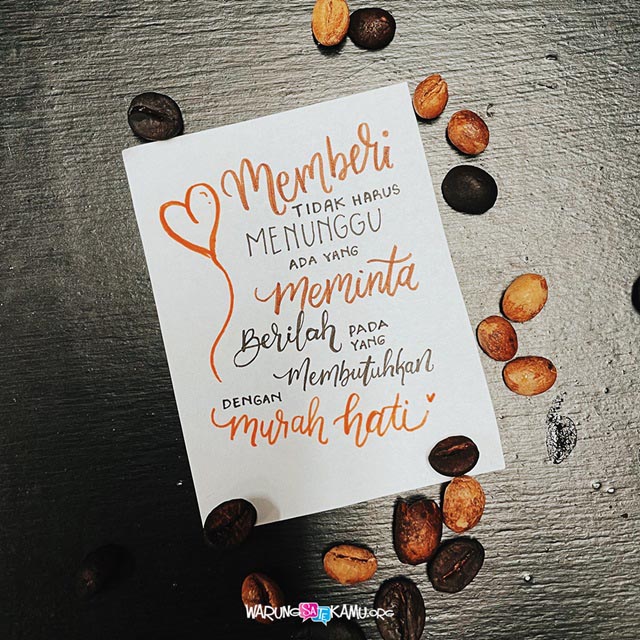 Memberi
TIDAK HARUS
MENUNGGU
ADA YANG
meminta
Berilah PADA
YANG
Membutuhkan
DENGAN
murah hati
WARUNGSATEKAMU.ORG